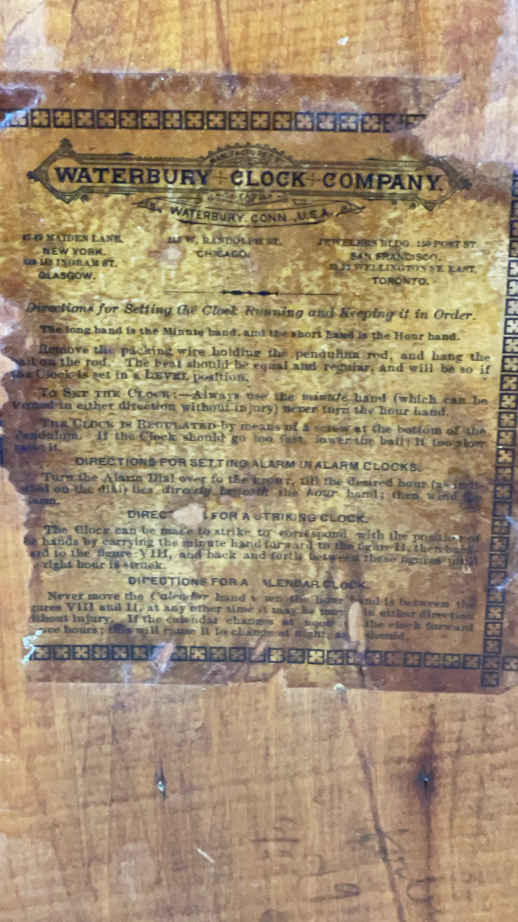 WATERBURY CLOCK COMPANY.
WATERBURY, CONN., U.S.A.
MAIDEN LANE,
NEW YORK.
INGRAM ST.
GLASGOW.
W. RANDOLPH ST.
CHICAGO.
JEWELERS BLDG. 150 POST ST.
SAN FRANCISCO.
WELLINGTON ST. EAST,
TORONTO.
Directions for Setting the Clock Running and Keeping it in Order.
The long hand is the Minute hand, and the short hand is the Hour hand.
Remove the packing wire holding the pendulum rod, and hang the
ball on the rod. The beat should be equal and regular, and will be so if
the Clock is set in a LEVEL position.
TO SET THE CLOCK:—Always use the minute hand (which can be
turned in either direction without injury) never turn the hour hand.
THE CLOCK IS REGULATED by means of a screw at the bottom of the
Pendulum. If the Clock should go too fast, lower the ball; if too slow
raise it.
DIRECTIONS FOR SETTING ALARM IN ALARM CLOCKS.
Turn the Alarm Dial over to the till the desired hour (as
on the dial) lies directly beneath the hour hand; then wind the
alarm.
FOR A STRIKING CLOCK.
The Clock can be made to strike to correspond with the position of
the hands by carrying the minute hand forward to the figure II, then
to the figure VIII, and back and forth between these figures until
right hour is struck.
DIRECTIONS FOR A CALENDAR CLOCK.
Never move the Calendar hand when the hour hand is between the
figures VIII and II; at any other time it may be in either direction
without injury. If the calendar changes at noon the clock forward
hours; this will cause it to change at night, as should.